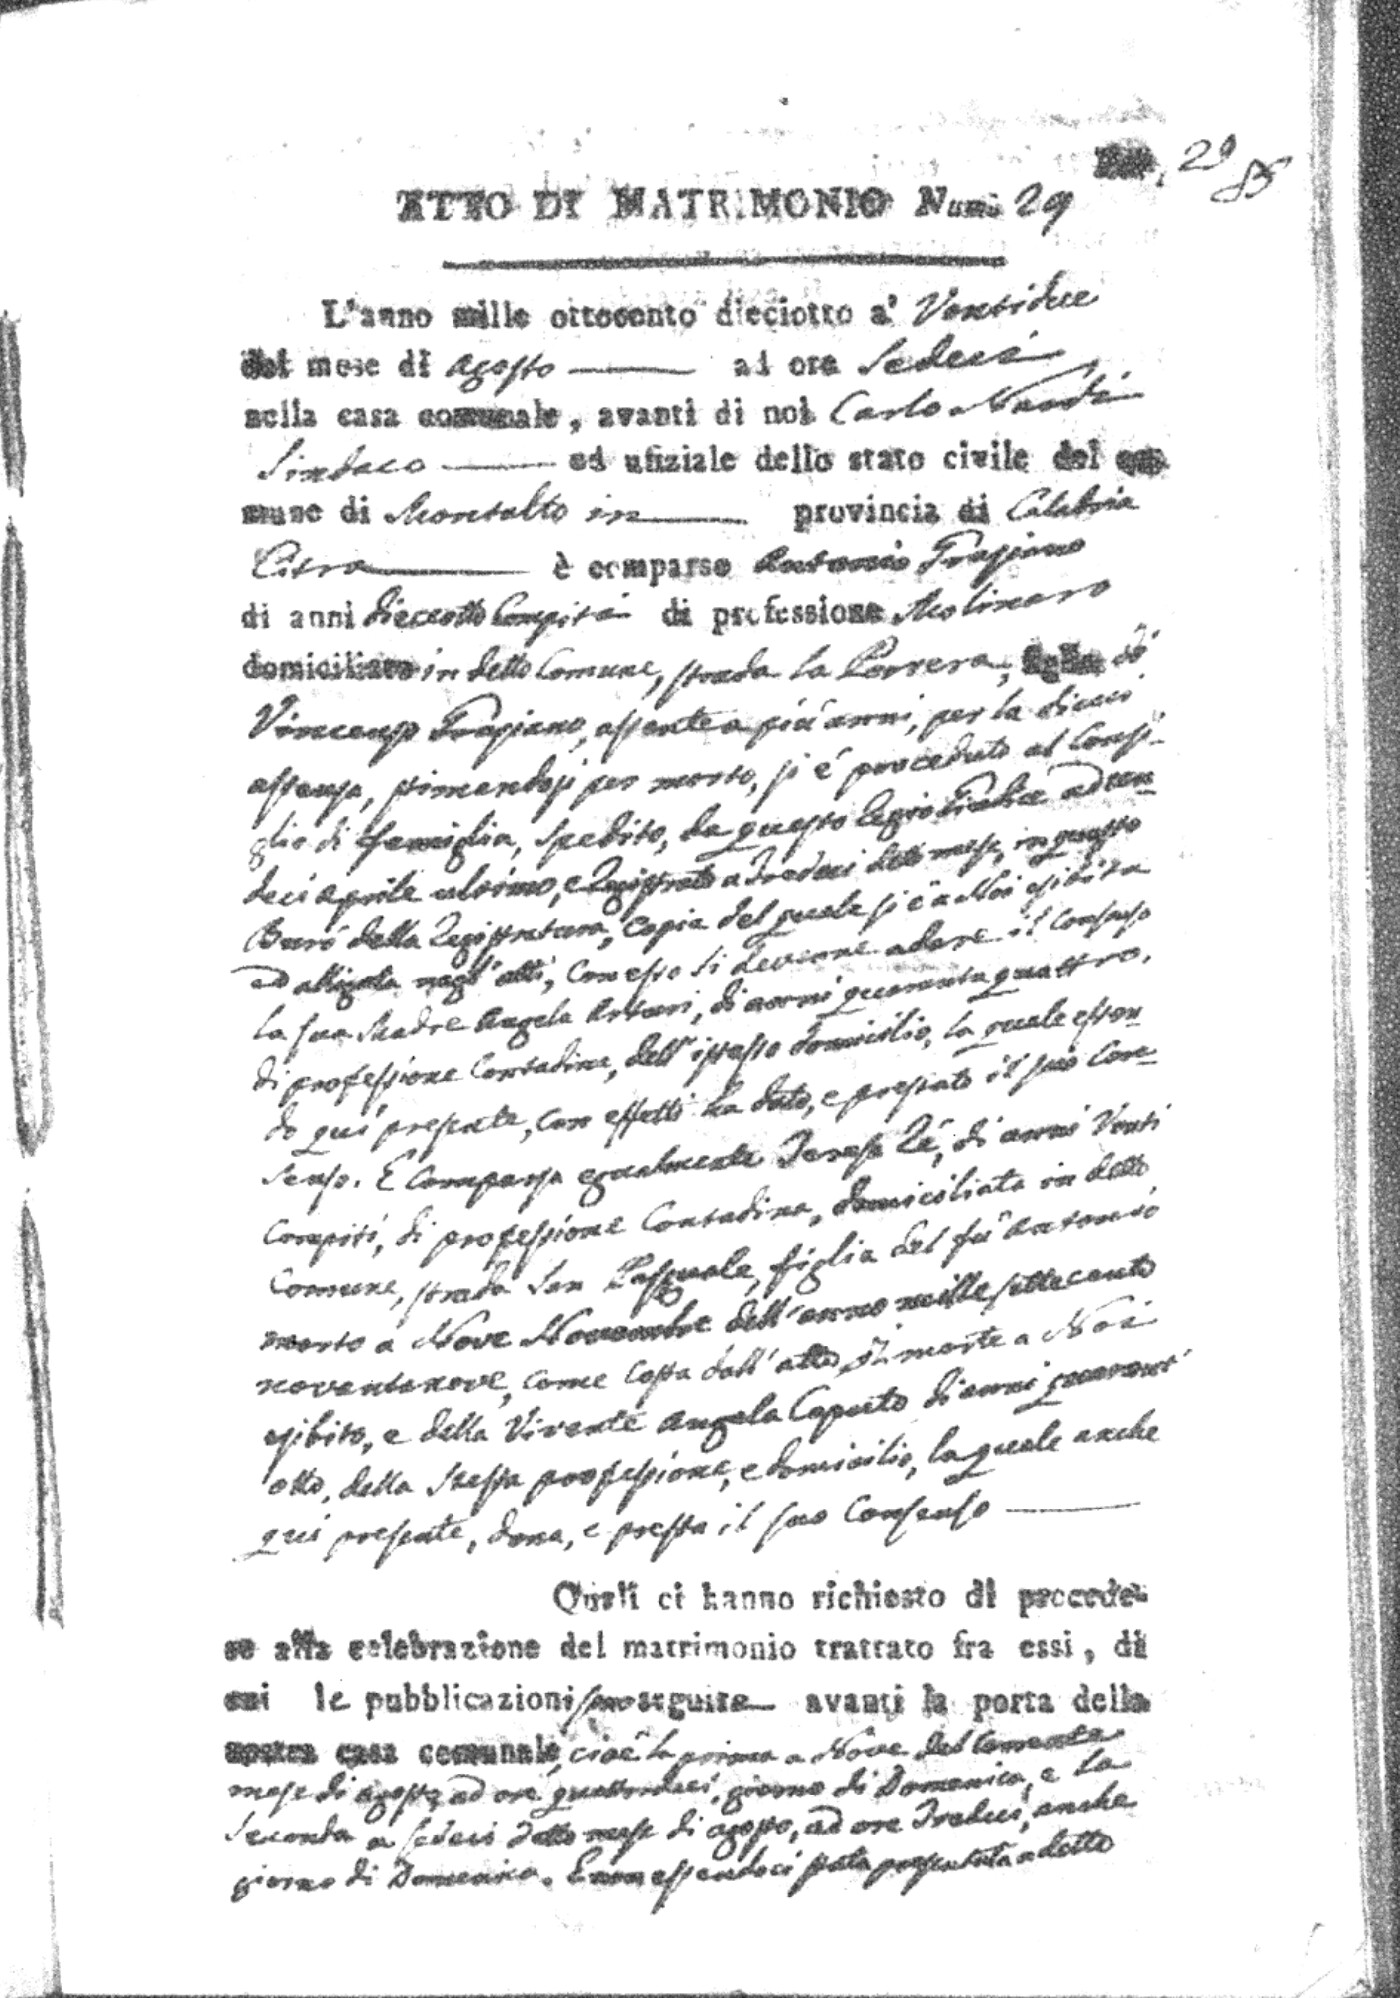 29
85
ATTO DI MATRIMONIO Num. 29
L'anno mille ottocento dieciotto a' Ventidue
del mese di Agosto ad ore Sedeci
nella casa comunale, avanti di noi Carlo Nardi
Sindaco ed ufiziale dello stato civile del co-
mune di Montalto in provincia di Calabria
Citra è comparso Antonio Trajano
di anni dieciotto Compiti di professione Molinaro
domiciliato in detto Comune, strada la Porrera, figlio di
Vincenzo Trajano, assente a più anni, per la di cui
assenza, stimandosi per morto, si è proceduto al Consi-
glio di famiglia, spedito, da questo Regio Giudice a
deci Aprile ultimo, e Registrato a Tredeci detto mese, in questo
Burò della Registratura, Copia del quale si è a Noi esibita
ed alligata negl'atti, con esso si devenne a dare il Consenso
la sua Madre Angela Arturi, di anni quaranta quattro,
di professione Contadina, dell'istesso domicilio, la quale essen-
do qui presente, con effetti ha dato, e prestato il suo Con-
senso. E Comparsa egualmente Teresa Rè, di anni Venti
Compiti, di professione Contadina, domiciliata in detto
Comune, strada San Pasquale, figlia del fù Antonio
morto a Nove Novembre dell'anno mille settecento
novantanove, come Costa dall'atto di morte a Noi
esibito, e della Vivente Angela Caputo di anni quarant'
otto, della stessa professione, e domicilio, la quale anche
qui presente, dona, e presta il suo Consenso
Quali ci hanno richiesto di procede-
re alla celebrazione del matrimonio trattato fra essi, di
cui le pubblicazioni sono seguite avanti la porta della
nostra casa comunale, cioè la prima a Nove del Corrente
mese di Agosto, ad ore quattordeci, giorno di Domenica, e la
Seconda a sedeci detto mese di Agosto, ad ore Tredeci, anche
giorno di Domenica. E non essendoci stata presentata a detto